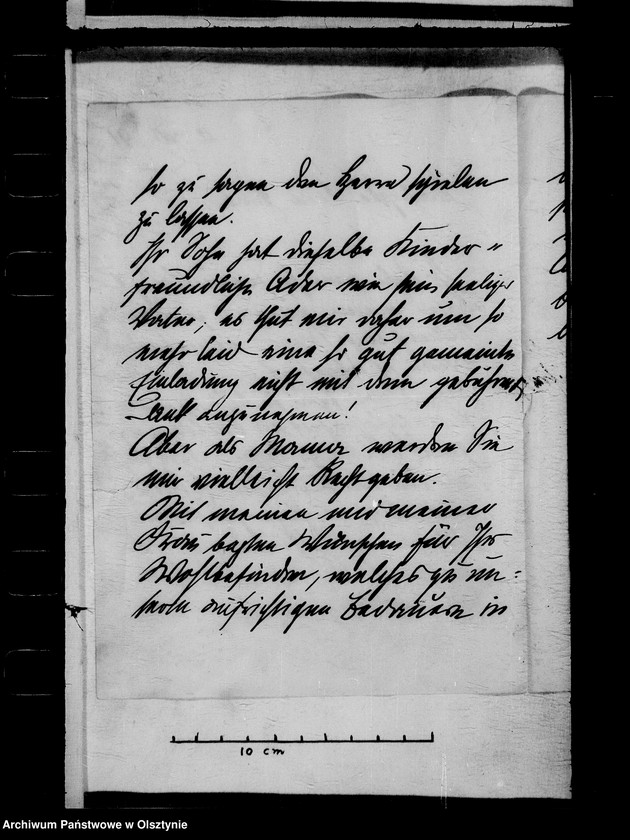 so zu sagen den Herrn spielen
zu lassen.
Ihr Sohn hat dieselbe Kinder-
freundliche Ader wie sein seeliger
Vater, es thut mir daher um so
mehr leid eine so gut gemeinte
Einladung nicht mit dem gebührend
Dank anzunehmen!
Aber als Mama werden Sie
mir vielleicht Recht geben.
Mit meinen und meiner
Frau besten Wünschen für Ihr
Wohlbefinden, welches zu un-
serm aufrichtigen Bedauern in
10 cm
Archiwum Państwowe w Olsztynie